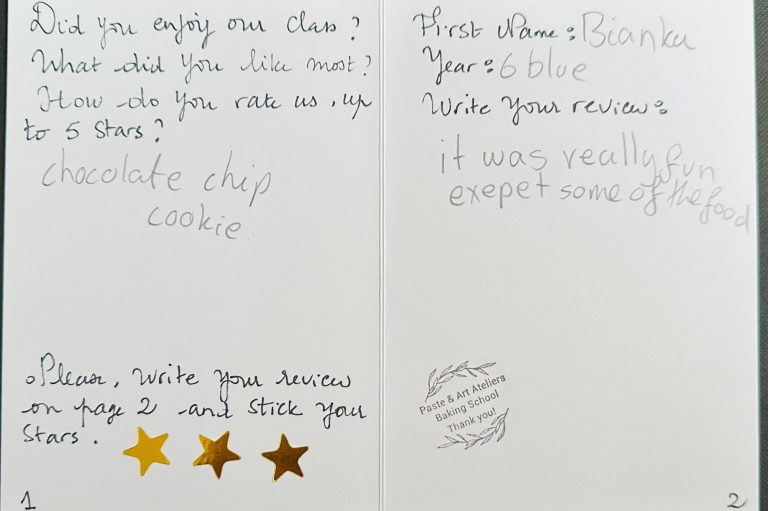 Did you enjoy our class?
What did you like most?
How do you rate us, up
to 5 stars?
chocolate chip
cookie
Please, write your review
on page 2 and stick your
stars.
1
First Name: Bianka
Year: 6 blue
Write your review:
it was really fun
exepet some of the food
Paste & Art Ateliers
Baking School
Thank you!
2